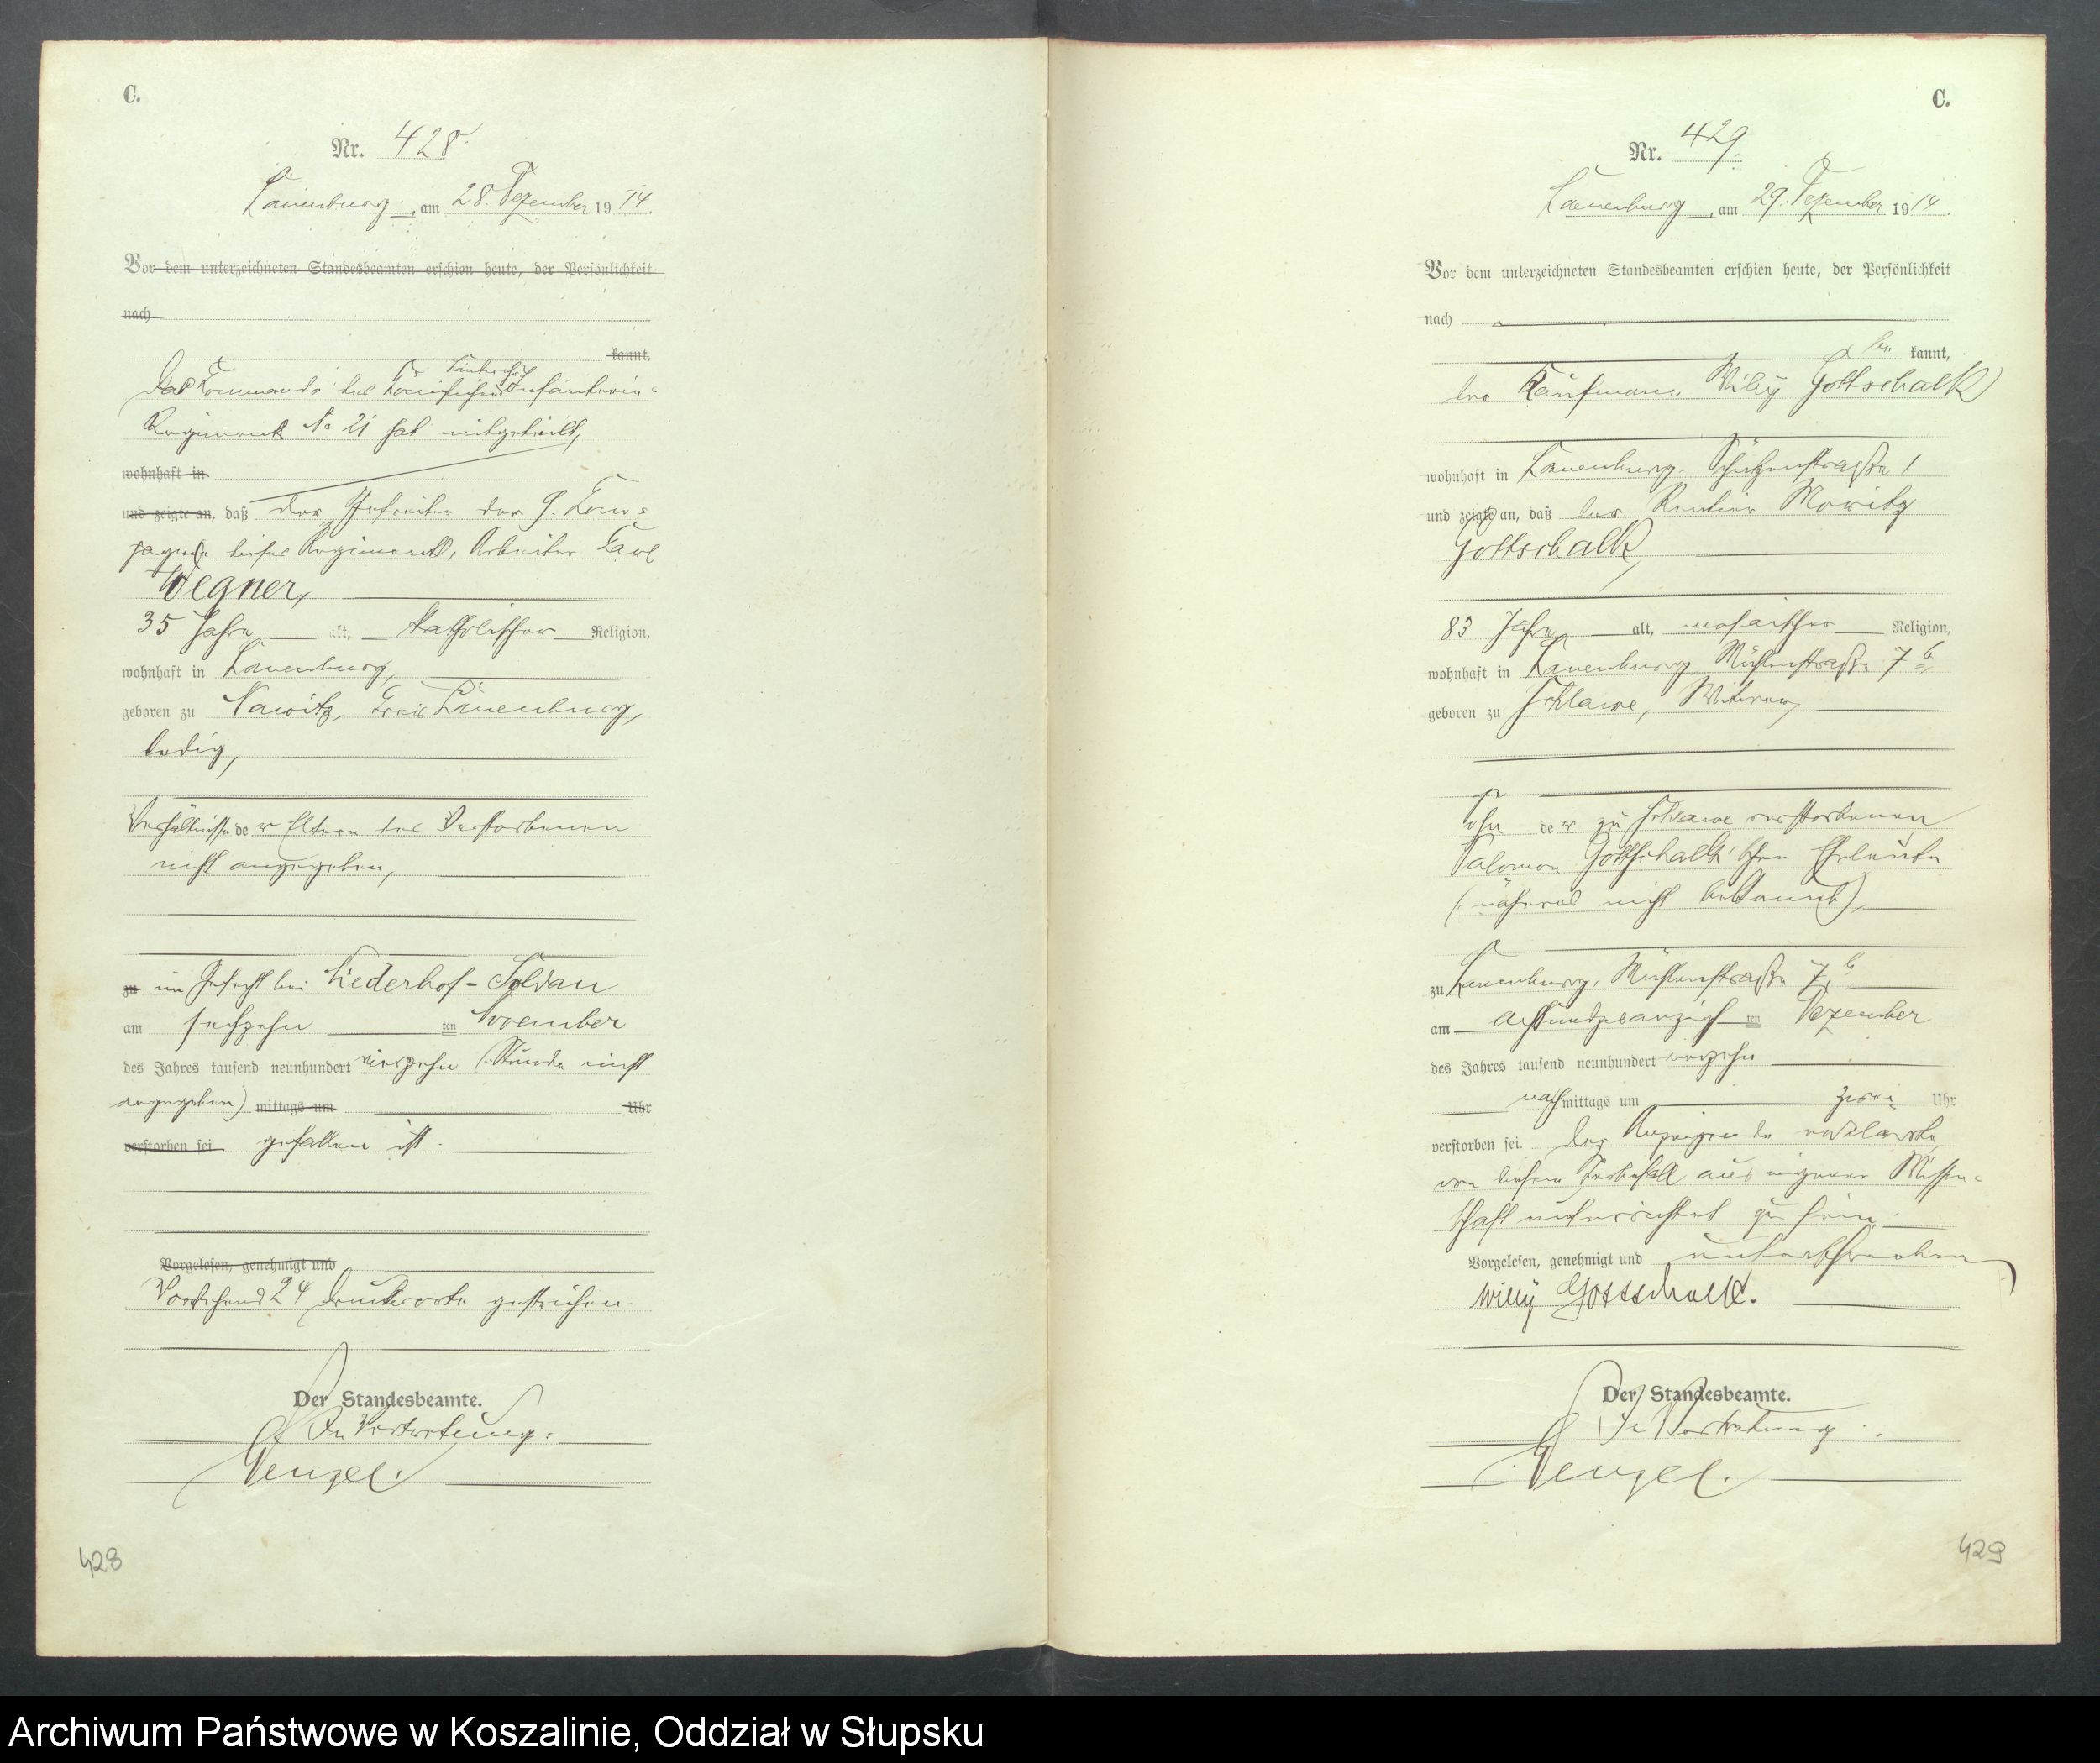 C.
Nr. 428.
Lauenburg, am 28. Dezember 1914.
Vor dem unterzeichneten Standesbeamten erschien heute, der Persönlichkeit
nach
kannt,
Das Kommando des Königlichen Landwehr Infanterie-
Regiments No 21 hat mitgeteilt,
wohnhaft in
und zeigte an, daß der Gefreiter der 9. Kom-
pagnie dieses Regiments, Arbeiter Karl
Wegner,
35 Jahre alt, katholischer Religion,
wohnhaft in Lauenburg,
geboren zu Nawitz, Kreis Lauenburg,
ledig,
Verhältnisse der Eltern des Verstorbenen
nicht angegeben,
zu im Gefecht bei Niederhof-Soldau
am sechzehn ten November
des Jahres tausend neunhundert vierzehn (Stunde nicht
angegeben) mittags um Uhr
verstorben sei gefallen ist.
Vorgelesen, genehmigt und
Vorstehend 24 Druckworte gestrichen.
Der Standesbeamte.
In Vertretung.
Wenzel.
428
C.
Nr. 429.
Lauenburg, am 29. Dezember 1914.
Vor dem unterzeichneten Standesbeamten erschien heute, der Persönlichkeit
nach
be kannt,
der Kaufmann Willy Gottschalk
wohnhaft in Lauenburg, Schützenstraße 1
und zeigte an, daß der Rentier Moritz
Gottschalk,
83 Jahre alt, mosaischer Religion,
wohnhaft in Lauenburg Mühlenstraße 7b,
geboren zu Schlawe, Witwer,
Sohn der zu Schlawe verstorbenen
Salomon Gottschalk'schen Eheleute
(näheres nicht bekannt),
zu Lauenburg, Mühlenstraße 7b
am achtundzwanzigsten Dezember
des Jahres tausend neunhundert vierzehn
nachmittags um zwei Uhr
verstorben sei. Der Anzeigende erklärte,
von diesem Sterbefall aus eigener Wissen-
schaft unterrichtet zu sein.
Vorgelesen, genehmigt und unterschrieben
Willy Gottschalk.
Der Standesbeamte.
In Vertretung.
Wenzel.
429
Archiwum Państwowe w Koszalinie, Oddział w Słupsku